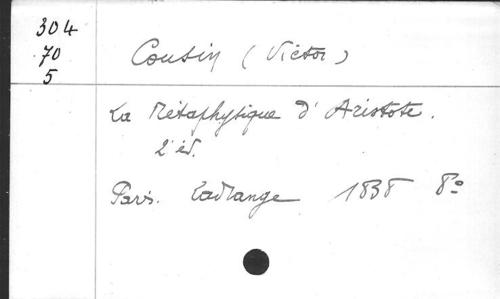 304
70
5
Cousin (Victor)
La Métaphysique d'Aristote.
2e éd.
Paris. Ladrange 1838 8º